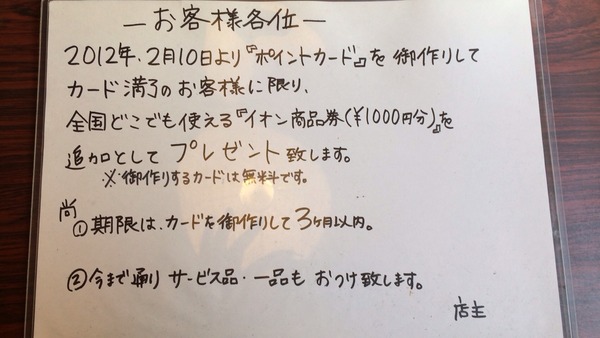 ーお客様各位ー
2012年.2月10日より『ポイントカード』を 御作りして
カード満了のお客様に限り、
全国どこでも使える『イオン商品券(¥1000円分)』を
追加としてプレゼント致します。
※御作りするカードは無料です。
尚
①期限は、カードを御作りして3ヶ月以内。
②今まで通り サービス品・一品も おつけ致します。
店主